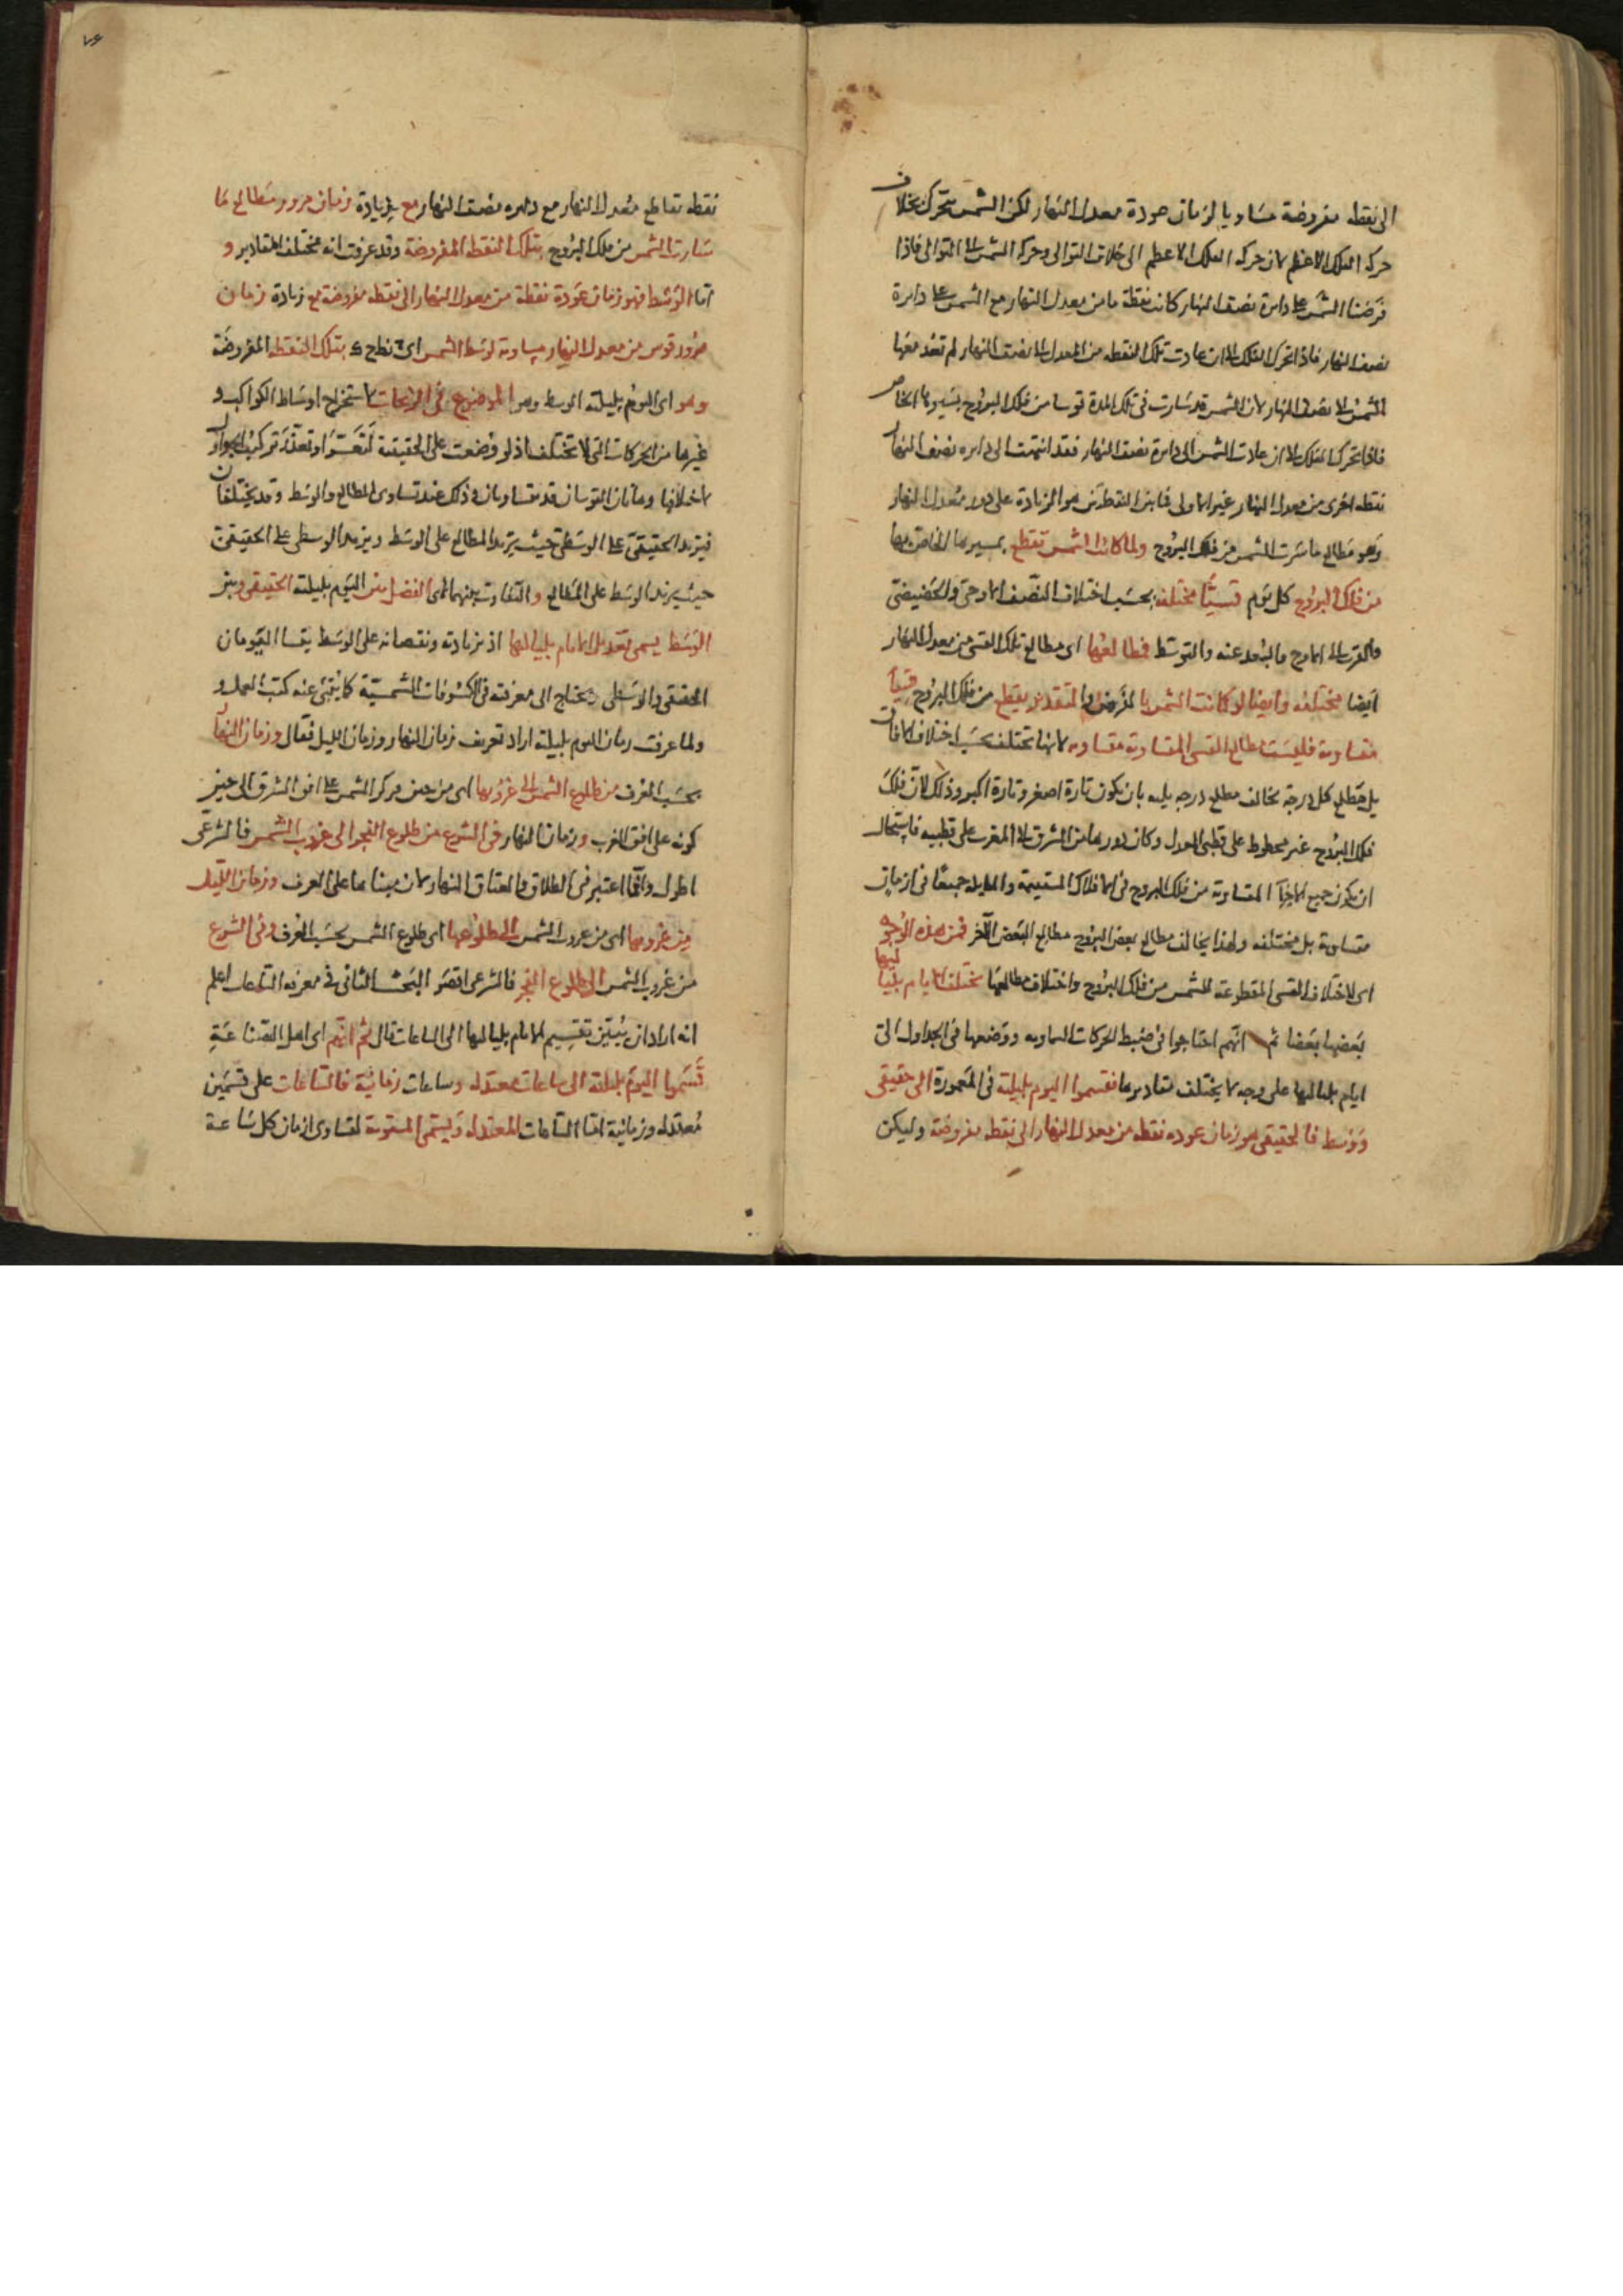 الى نقطة مفروضة مساويا لزمان عودة معدل النهار لكن الشمس تتحرك بخلاف
حركة الفلك الاعظم لان حركة الفلك الاعظم الى خلاف التوالى وحركة الشمس الى التوالى فاذا
فرضنا الشمس على دايرة نصف النهار كانت نقطة ما من معدل النهار مع الشمس على دايرة
نصف النهار فاذا تحرك الفلك الى ان عادت تلك النقطة من المعدل الى نصف النهار لم تعد معها
الشمس الى نصف النهار لان الشمس قد سارت فى تلك المدة قوسا من فلك البروج بسيرها الخاص
فاذا تحرك الفلك الى ان عادت الشمس الى دايرة نصف النهار فقد انتهت الى دايره نصف النهار
نقطة اخرى من معدل النهار غير الاولى فما بين النقطتين هو الزيادة على دور معدل النهار
وهو مطالع ما سارت الشمس من فلك البروج ولما كانت الشمس تقطع بمسيرها الخاص بها
من فلك البروج كل يوم قسيًّا مختلفة بحسب اختلاف النصف الاوجى والحضيضى
والقرب الى الاوج والبعد عنه والتوسط فمطالعها اى مطالع تلك القسى من معدل النهار
ايضا مختلفه وايضا لو كانت الشمس بالفرض والتقدير يقطع من فلك البروج قسيا
متساوية فليست مطالع القسى المتساوية متساويه لانها تختلف بحسب اختلاف الافاق
بل مطلع كل درجة يخالف مطلع درجه يليه بان يكون تارة اصغر وتارة اكبر وذلك لان فلك
فلك البروج غير مخطوط على قطبى المعدل وكان دورها من المشرق الى المغرب على قطبيه فاستحال
ان يكون جميع الاجزآ المتساوية من فلك البروج فى الافلاك المستقيمة والمايله جميعًا فى ازمان
متساوية بل مختلفه ولهذا يخالف مطالع بعض البروج مطالع البعض الآخر فمن هذه الوجوه
اى لاختلاف القسى المقطوعة للشمس من فلك البروج واختلاف مطالعها تختلف الايام بلياليها
بعضها بعضا ثم انهم احتاجوا فى ضبط الحركات السماويه ووضعها فى الجداول الى
ايام بلياليها على وجه لا يختلف مقاديرها فقسموا اليوم بليلته فى المعمورة الى حقيقى
ووسط فالحقيقى هو زمان عوده نقطة من معدل النهار الى نقطه مفروضة وليكن
٧٤
نقطه تقاطع معدل النهار مع دايره نصف النهار مع زيادة زمان مرور مطالع ما
سارت الشمس من فلك البروج بتلك النقطة المفروضة وقد عرفت انه مختلف المقادير و
اما الوسط فهو زمان عودة نقطة من معدل النهار الى نقطه مفروضة مع زيادة زمان
مرور قوس من معدل النهار مساوية لوسط الشمس اى نط ح بتلك النقطة المفروضة
وهو اى اليوم بليلته الوسط وهو الموضوع فى الزيجات لاستخراج اوساط الكواكب و
غيرها من الحركات التى لا تختلف اذ لو وضعت على الحقيقية لتعسر او تعذر تركيب الجداول
لاختلافها وهاتان القوسان قد يتساويان وذلك عند تساوى المطالع والوسط وقد يختلفان
فيزيد الحقيقى على الوسطى حيث يزيد المطالع على الوسط ويزيد الوسطى على الحقيقى
حيث يزيد الوسط على المطالع والتفاوت بينهما اى الفضل بين اليوم بليلته الحقيقى وبين
الوسط يسمى تعديل الايام بلياليها اذ بزيادته ونقصانه على الوسط يتساوى اليومان
الحقيقى والوسطى ويحتاج الى معرفته فى الكسوفات الشمسية كما ينبئ عنه كتب العمل و
ولما عرفت زمان اليوم بليلته اراد تعريف زمان النهار وزمان الليل فقال وزمان النهار
بحسب العرف من طلوع الشمس الى غروبها اى من حين مركز الشمس على افق الشرق الى حين
كونه على افق الغرب وزمان النهار فى الشرع من طلوع الفجر الى غروب الشمس فالشرعى
اطول وانما اعتبر فى الطلاق والعتاق النهار لان مبناها على العرف وزمان الليل
من غروبها اى من غروب الشمس الى طلوعها اى طلوع الشمس بحسب العرف وفى الشرع
من غروب الشمس الى طلوع الفجر فالشرعى اقصر البحث الثانى فى معرفه الساعات اعلم
انه اراد ان يبين تقسيم الايام بلياليها الى الساعات قال ثم انهم اى اهل الصناعة
قسموا اليوم بليلته الى ساعات معتدله وساعات زمانية فالساعات على قسمين
معتدله وزمانية اما الساعات المعتدله ويسمى المستوية لتساوى ازمان كل ساعة